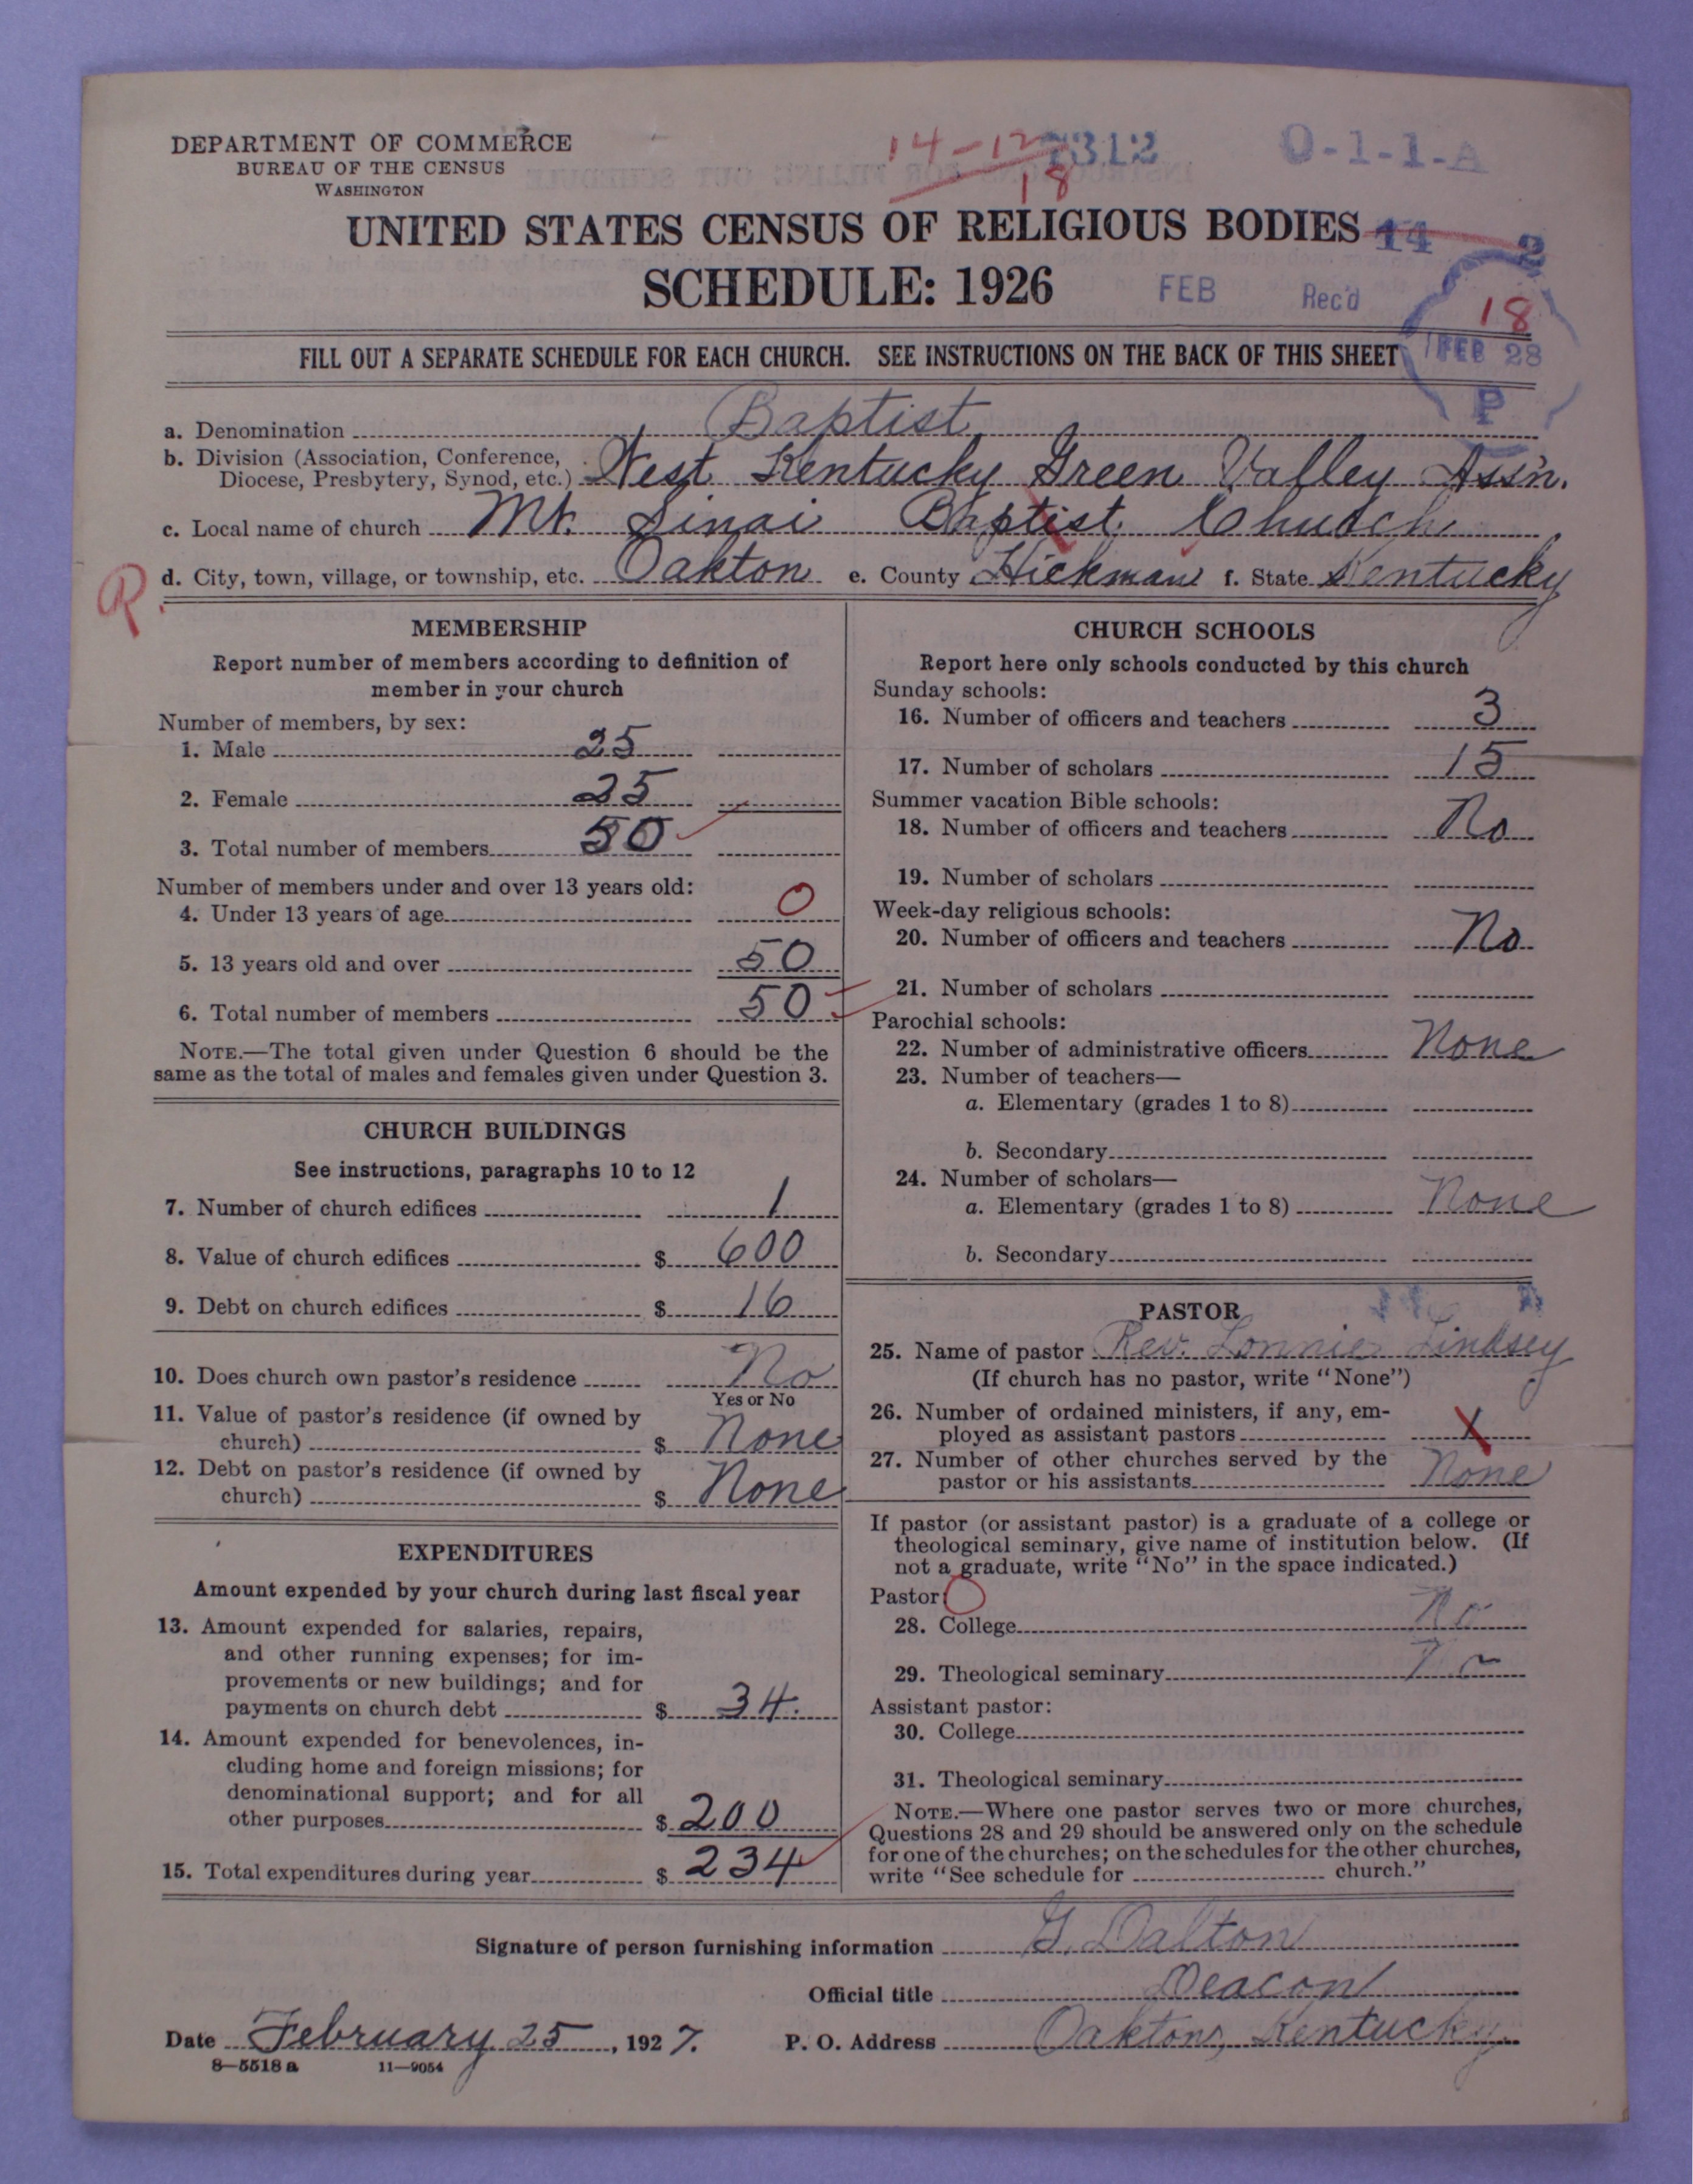 DEPARTMENT OF COMMERCE
BUREAU OF THE CENSUS
WASHINGTON
14-12
18
7312
O-1-1-A
UNITED STATES CENSUS OF RELIGIOUS BODIES
14 2
SCHEDULE: 1926
FEB Rec'd
18
FEB 28
P
FILL OUT A SEPARATE SCHEDULE FOR EACH CHURCH. SEE INSTRUCTIONS ON THE BACK OF THIS SHEET
a. Denomination Baptist
b. Division (Association, Conference,
Diocese, Presbytery, Synod, etc.) West Kentucky Green Valley Ass'n.
c. Local name of church Mt. Sinai Baptist Church
R. d. City, town, village, or township, etc. Oakton e. County Hickman f. State Kentucky
MEMBERSHIP
Report number of members according to definition of
member in your church
Number of members, by sex:
1. Male 25
2. Female 25
3. Total number of members 50
Number of members under and over 13 years old:
4. Under 13 years of age 0
5. 13 years old and over 50
6. Total number of members 50
NOTE.—The total given under Question 6 should be the
same as the total of males and females given under Question 3.
CHURCH BUILDINGS
See instructions, paragraphs 10 to 12
7. Number of church edifices 1
8. Value of church edifices $ 600
9. Debt on church edifices $ 16
10. Does church own pastor's residence No
Yes or No
11. Value of pastor's residence (if owned by
church) $ None
12. Debt on pastor's residence (if owned by
church) $ None
EXPENDITURES
Amount expended by your church during last fiscal year
13. Amount expended for salaries, repairs,
and other running expenses; for im-
provements or new buildings; and for
payments on church debt $ 34.
14. Amount expended for benevolences, in-
cluding home and foreign missions; for
denominational support; and for all
other purposes $ 200
15. Total expenditures during year $ 234
CHURCH SCHOOLS
Report here only schools conducted by this church
Sunday schools:
16. Number of officers and teachers 3
17. Number of scholars 15
Summer vacation Bible schools:
18. Number of officers and teachers No
19. Number of scholars
Week-day religious schools:
20. Number of officers and teachers No
21. Number of scholars
Parochial schools:
22. Number of administrative officers None
23. Number of teachers—
a. Elementary (grades 1 to 8)
b. Secondary
24. Number of scholars—
a. Elementary (grades 1 to 8) None
b. Secondary
PASTOR
25. Name of pastor Rev. Lonnie Lindsey
(If church has no pastor, write "None")
26. Number of ordained ministers, if any, em-
ployed as assistant pastors X
27. Number of other churches served by the
pastor or his assistants None
If pastor (or assistant pastor) is a graduate of a college or
theological seminary, give name of institution below. (If
not a graduate, write "No" in the space indicated.)
Pastor: O
28. College No
29. Theological seminary No
Assistant pastor:
30. College
31. Theological seminary
NOTE.—Where one pastor serves two or more churches,
Questions 28 and 29 should be answered only on the schedule
for one of the churches; on the schedules for the other churches,
write "See schedule for church."
Signature of person furnishing information G. Dalton
Official title Deacon
Date February 25, 1927. P. O. Address Oakton, Kentucky
8—5518 a 11—9054